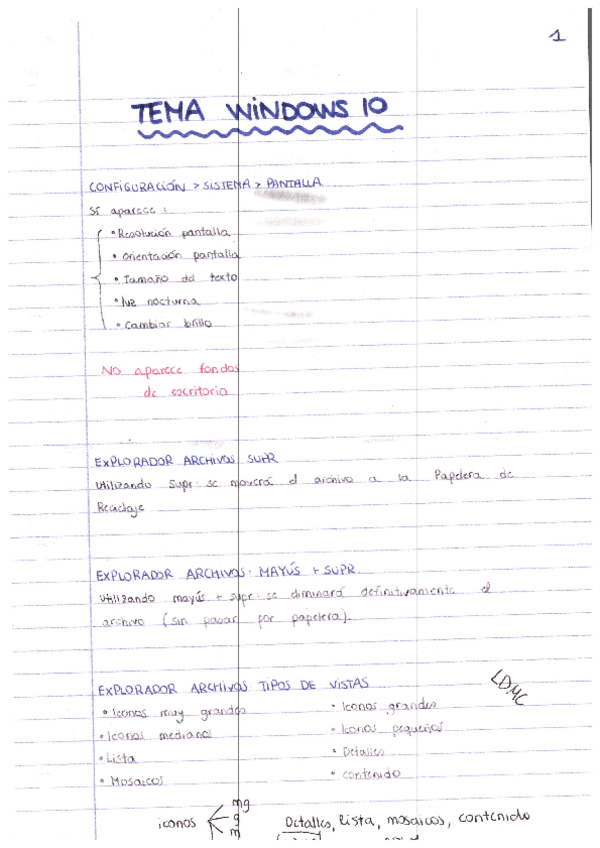 1
TEMA WINDOWS 10
CONFIGURACIÓN > SISTEMA > PANTALLA
Sí aparece :
• Resolución pantalla
• Orientación pantalla
• Tamaño del texto
• luz nocturna
• Cambiar brillo
NO aparece fondos
de escritorio
EXPLORADOR ARCHIVOS SUPR
Utilizando Supr se moverá el archivo a la Papelera de
Reciclaje
EXPLORADOR ARCHIVOS: MAYÚS + SUPR.
Utilizando mayús + supr se eliminará definitivamente el
archivo (sin pasar por papelera).
EXPLORADOR ARCHIVOS TIPOS DE VISTAS
LDMC
• Iconos muy grandes • Iconos grandes
• Iconos medianos • Iconos pequeños
• Lista • Detalles
• Mosaicos • contenido
mg
iconos g Detalles, lista, mosaicos, contenido
m